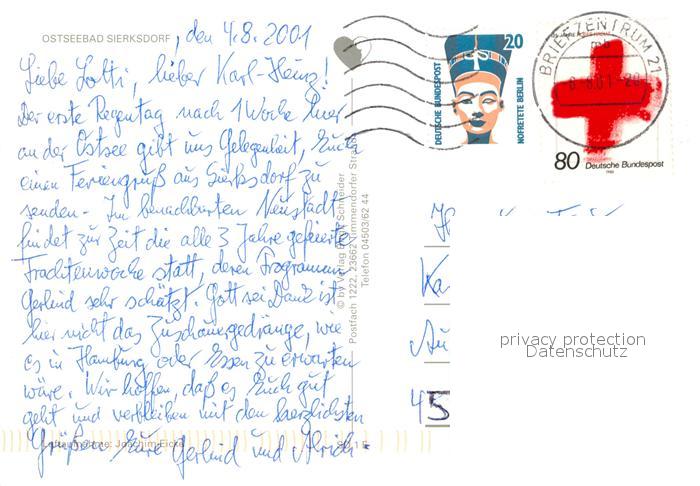 OSTSEEBAD SIERKSDORF, den 4.8.2001
Liebe Lotti, lieber Karl-Heinz!
Der erste Regentag nach 1 Woche hier
an der Ostsee gibt uns Gelegenheit, Euch
einen Feriengruß aus Sierksdorf zu
senden. Im benachbarten Neustadt
findet zur Zeit die alle 3 Jahre gefeierte
Trachtenwoche statt, deren Programm
Gerlind sehr schätzt. Gott sei Dank ist
hier nicht das Zuschauergedränge, wie
es in Hamburg oder Essen zu erwarten
wäre. Wir hoffen, daß es Euch gut
geht und verbleiben mit den herzlichsten
Grüßen Eure Gerlind und Ulrich.
Luftaufnahme: Joachim Eicke
© by Verlag Schneider
Postfach 1222, 23662 Timmendorfer Strand
Telefon 04503/62 44
20
DEUTSCHE BUNDESPOST
NOFRETETE BERLIN
BRIEFZENTRUM 21
mb
80 Deutsche Bundespost
1988
Ka
Au
45
privacy protection
Datenschutz